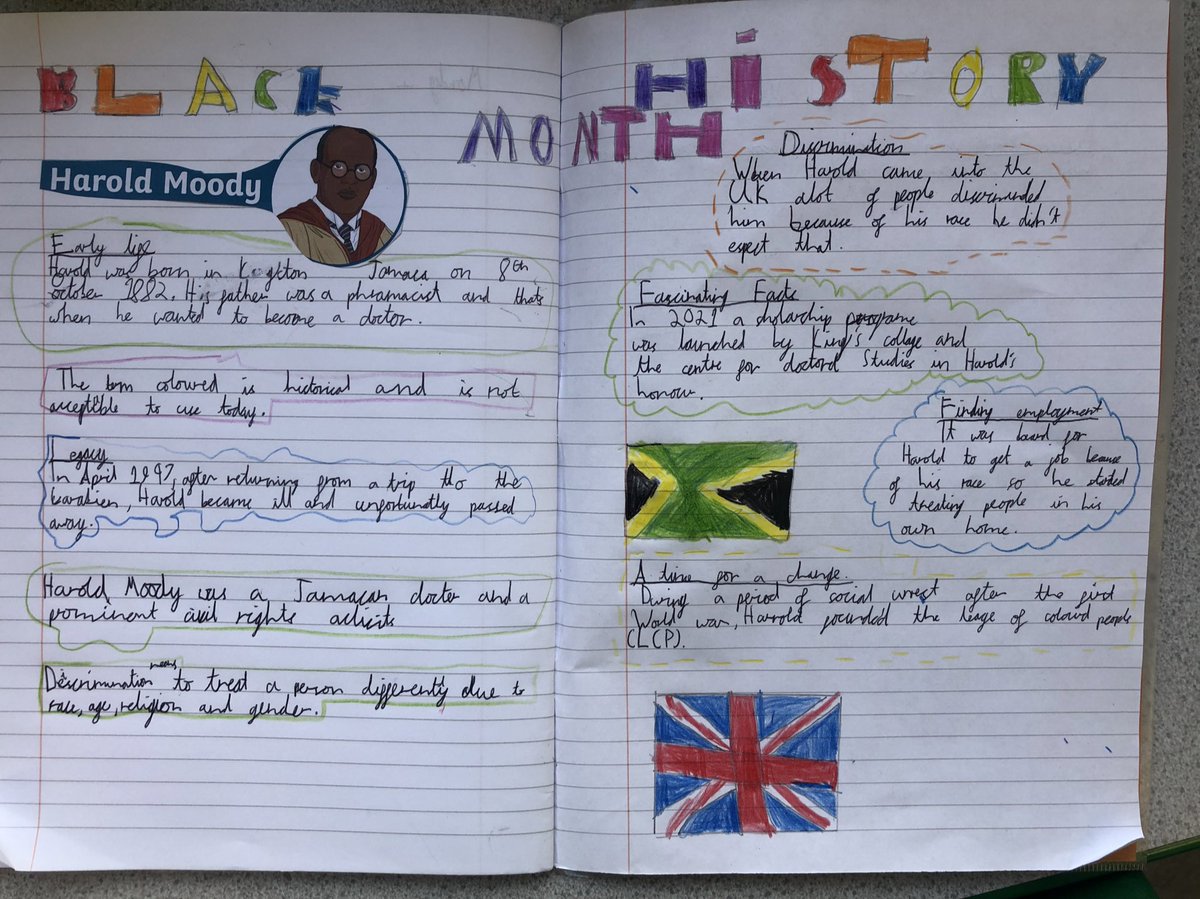 BLACK HiSTORY
MONTH
Harold Moody
Early life
Harold was born in Kingston Jamaca on 8th
october 1882. His father was a phramacist and thats
when he wanted to become a doctor.
The term coloured is historical and is not
acceptible to use today.
Legacy
In April 1947, after returning from a trip tto the
Carabien, Harold became ill and unfortundly passed
away.
Harold Moody was a Jamacan doctor and a
prominent civil rights activits
Descrimination means to treat a person differently due to
race, age, religion and gender.
Discrimination
When Harold came into the
UK alot of people discriminded
him because of his race he didn't
expect that.
Fascinating Facts
In 2021 a sholarship programe
was launched by King's collage and
the centre for doctord Studies in Harold's
honour.
Finding employment
It was hard for
Harold to get a job because
of his race so he started
treating people in his
own home.
A time for a change.
During a period of social unrest after the first
World war, Harrold founded the leage of colourd people
(LCP).